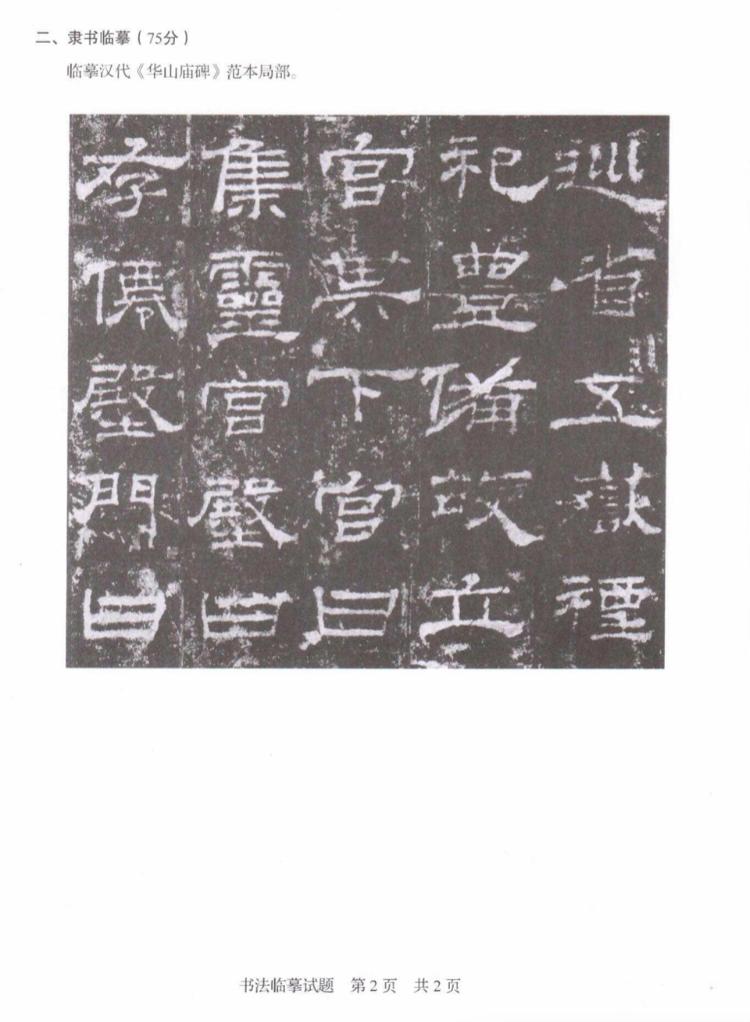 二、隶书临摹（75分）
临摹汉代《华山庙碑》范本局部。
巡省五嶽禋
祀豊備故立
宮其下宮曰
集靈宮壂曰
存僊壂門曰
书法临摹试题 第2页 共2页